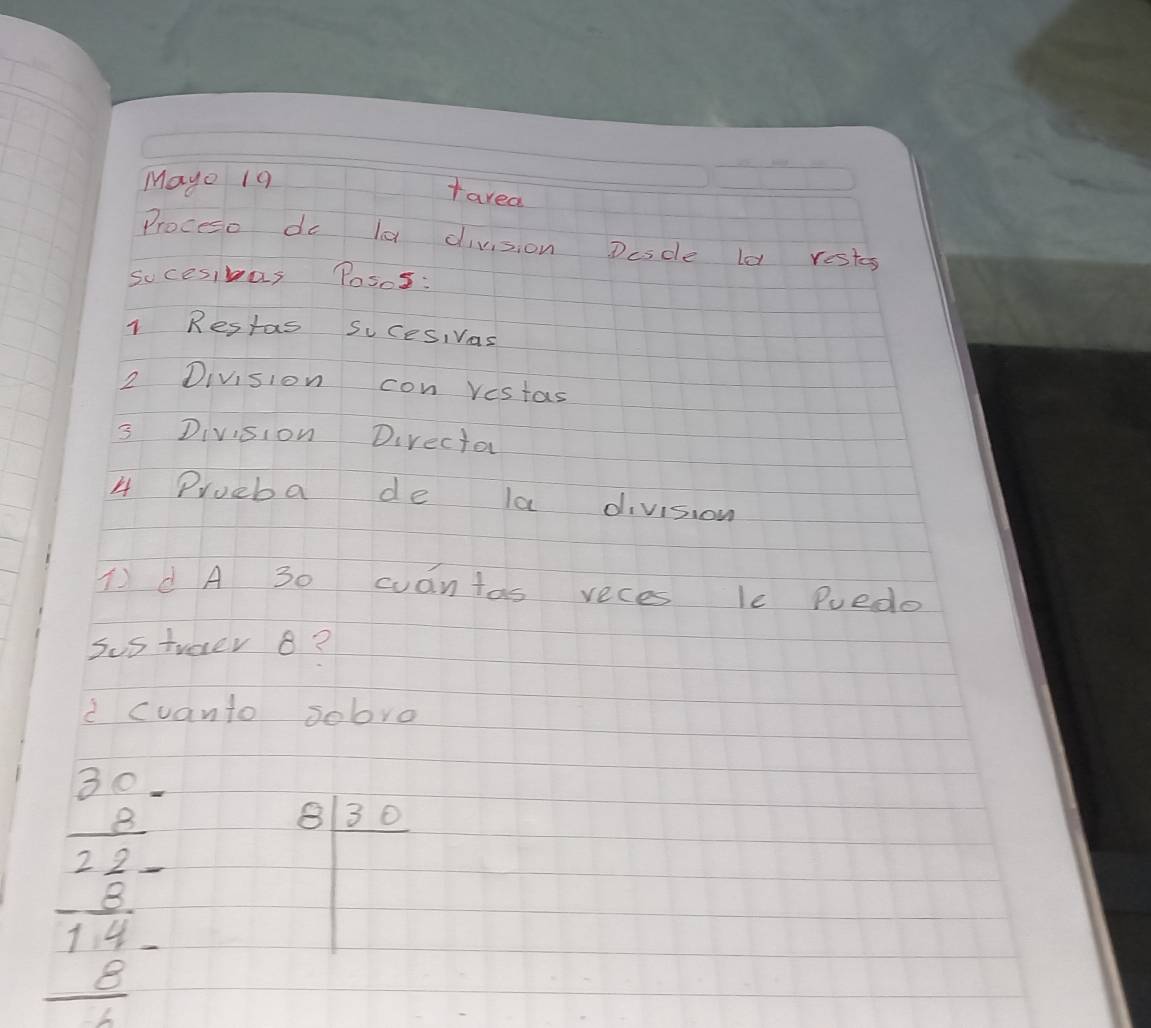 Mayo 19 tarea
Proceso de la division Desde la restas
sucesivas Pasos:
1 Restas sucesivas
2 Division con restas
3 Division Directa
4 Prueba de la division
1) ¿ A 30 cuántas veces le Puedo
sustraer 8?
¿ cuanto sobro
30-
8
8 30
22-
8
14-
8
6